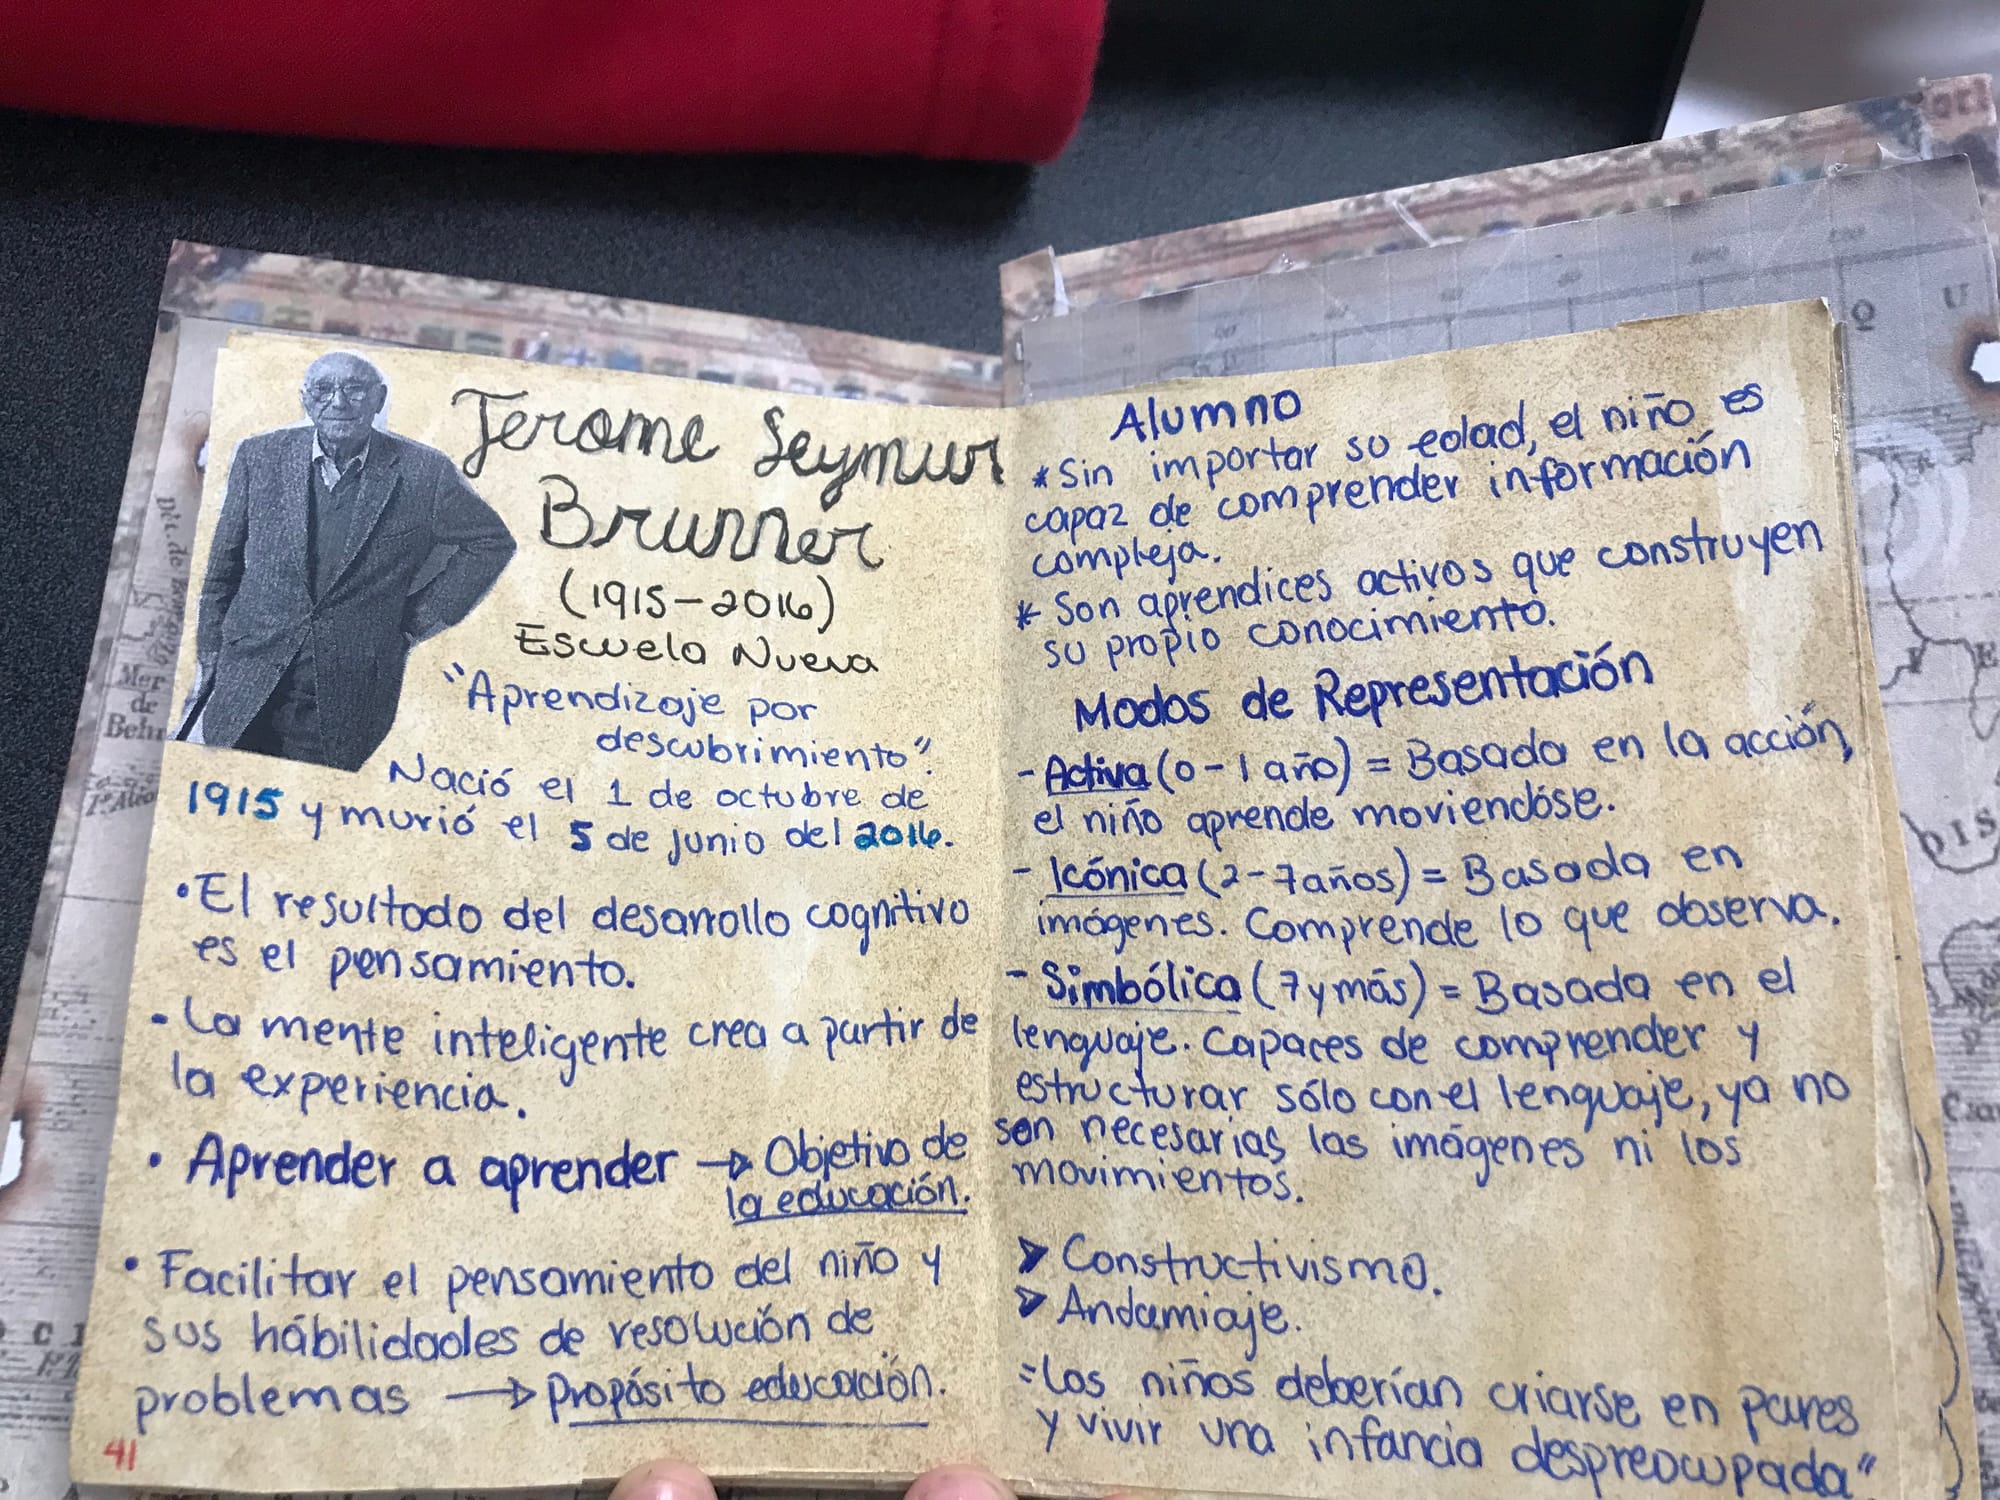 Jerome Seymur
Brunner
(1915-2016)
Escuela Nueva
"Aprendizaje por
descubrimiento".
Nació el 1 de octubre de
1915 y murió el 5 de junio del 2016.
•El resultado del desarrollo cognitivo
es el pensamiento.
- La mente inteligente crea a partir de
la experiencia.
• Aprender a aprender → Objetivo de
la educación.
• Facilitar el pensamiento del niño y
sus hábilidades de resolución de
problemas → Propósito educación.
41
Alumno
* Sin importar su edad, el niño es
capaz de comprender información
compleja.
* Son aprendices activos que construyen
su propio conocimiento.
Modos de Representación
- Activa (0-1 año) = Basado en la acción,
el niño aprende moviendóse.
- Icónica (2-7 años) = Basada en
imágenes. Comprende lo que observa.
- Simbólica (7 y más) = Basada en el
lenguaje. Capaces de comprender y
estructurar sólo con el lenguaje, ya no
son necesarias las imágenes ni los
movimientos.
➤ Constructivismo.
➤ Andamiaje.
=Los niños deberían criarse en pares
y vivir una infancia despreocupada"
Mer
de